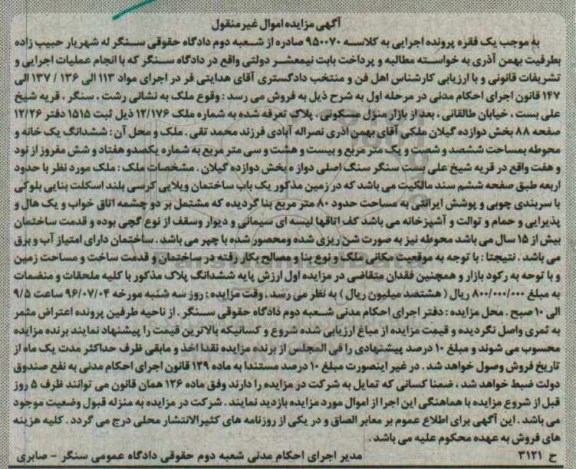 آگهی مزایده اموال غیر منقول
به موجب یک فقره پرونده اجرایی به کلاسه ۹۵۰۰۷۰ صادره از شعبه دوم دادگاه حقوقی سنگر له شهریار حبیب زاده
بطرفیت بهمن آذری به خواسته مطالبه و پرداخت بابت نیمعشر دولتی واقع در دادگاه سنگر که با انجام عملیات اجرایی و
تشریفات قانونی و با ارزیابی کارشناس اهل فن و منتخب دادگستری آقای هدایتی فر در اجرای مواد ۱۱۳ الی ۱۳۶ / ۱۳۷ الی
۱۴۷ قانون اجرای احکام مدنی در مرحله اول به شرح ذیل به فروش می رسد : وقوع ملک به نشانی رشت ، سنگر ، قریه شیخ
علی بست ، خیابان طالقانی ، بعد از بازار منزل مسکونی . پلاک تعرفه شده به شماره ملک ۱۲/۱۷۶ ذیل ثبت ۱۵۱۵ دفتر ۱۲/۲۶
صفحه ۸۸ بخش دوازده گیلان ملکی آقای بهمن آذری نصراله آبادی فرزند محمد تقی . ملک و محل آن : ششدانگ یک خانه و
محوطه بمساحت ششصد و شصت و یک متر مربع و بیست و هشت و سی متر مربع به شماره یکصدو هفتاد و شش مفروز از نود
و هفت واقع در قریه شیخ علی بست سنگر سنگ اصلی دوازه بخش دوازده گیلان . مشخصات ملک : ملک مورد نظر با حدود
اربعه طبق صفحه ششم سند مالکیت می باشد که در زمین مذکور یک باب ساختمان ویلایی کرسی بلند اسکلت بنایی بلوکی
با سربندی چوبی و پوشش ایرانتی به مساحت حدود ۸۰ متر مربع بنا گردیده که مشتمل بر دو چشمه اتاق خواب و یک هال و
پذیرایی و حمام و توالت و آشپزخانه می باشد کف اتاقها لیسه ای سیمانی و دیوار وسقف از نوع گچی بوده و قدمت ساختمان
بیش از ۱۵ سال می باشد محوطه نیز به صورت شن ریزی شده ومحصور شده با چپر می باشد . ساختمان دارای امتیاز آب و برق
می باشد . نتیجتا : با توجه به موقعیت مکانی ملک و نوع بنا و مصالح بکار رفته در ساختمان و قدمت ساخت و مساحت زمین
و با توجه به رکود بازار و همچنین فقدان متقاضی در مزایده اول ارزش پایه ششدانگ پلاک مذکور با کلیه ملحقات و منضمات
به مبلغ ۸۰۰/۰۰۰/۰۰۰ ریال ( هشتصد میلیون ریال ) به نظر می رسد . وقت مزایده : روز سه شنبه مورخه ۹۶/۰۷/۰۴ ساعت ۹/۵
الی ۱۰ صبح . محل مزایده : دفتر اجرای احکام مدنی شعبه دوم دادگاه حقوقی سنگر . از ناحیه طرفین پرونده اعتراض مثمر
به ثمری واصل نگردیده و قیمت مزایده از مبلغ ارزیابی شده شروع و کسانیکه بالاترین قیمت را پیشنهاد نمایند برنده مزایده
محسوب می شوند و مبلغ ۱۰ درصد پیشنهادی را فی المجلس از برنده مزایده نقدا اخذ و مابقی ظرف حداکثر مدت یک ماه از
تاریخ فروش وصول خواهد شد . در غیر اینصورت مبلغ ۱۰ درصد مستندا به ماده ۱۲۹ قانون اجرای احکام مدنی به نفع صندوق
دولت ضبط خواهد شد ، ضمنا کسانی که تمایل به شرکت در مزایده را دارند وفق ماده ۱۲۶ همان قانون می توانند ظرف ۵ روز
قبل از شروع مزایده با هماهنگی این اجرا از اموال مورد مزایده بازدید نمایند . شرکت در مزایده به منزله قبول وضعیت موجود
می باشد . این آگهی برای اطلاع عموم بر معابر الصاق و در یکی از روزنامه های کثیرالانتشار محلی درج می گردد . کلیه هزینه
های فروش به عهده محکوم علیه می باشد .
ح ۳۱۲۱ مدیر اجرای احکام مدنی شعبه دوم حقوقی دادگاه عمومی سنگر - صابری